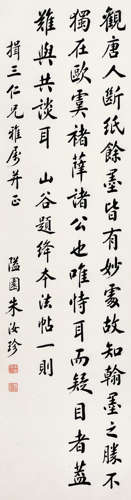 觀唐人斷紙餘墨皆有妙處故知翰墨之勝不
獨在歐虞褚薛諸公也唯恃耳而疑目者蓋
難與共談耳 山谷題絳本法帖一則
揖三仁兄雅屬并正 隘園朱汝珍